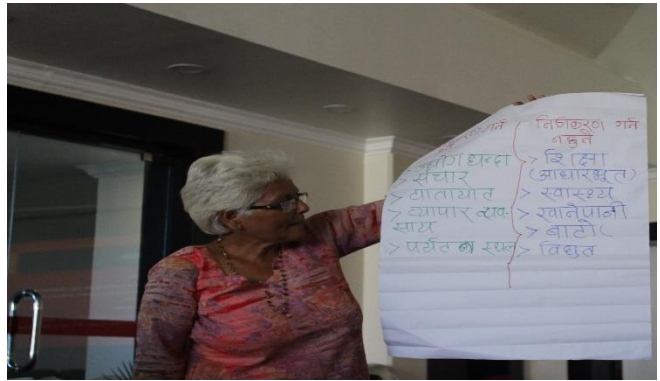 गर्ने
धन्दा
> संचार
> यातायात
> व्यापार व्यव-
साय
> पर्यटन स्थल
निजीकरण गर्न
नहुने
> शिक्षा
(आधारभूत)
> स्वास्थ्य
> खानेपानी
> बाटो
> विधुत